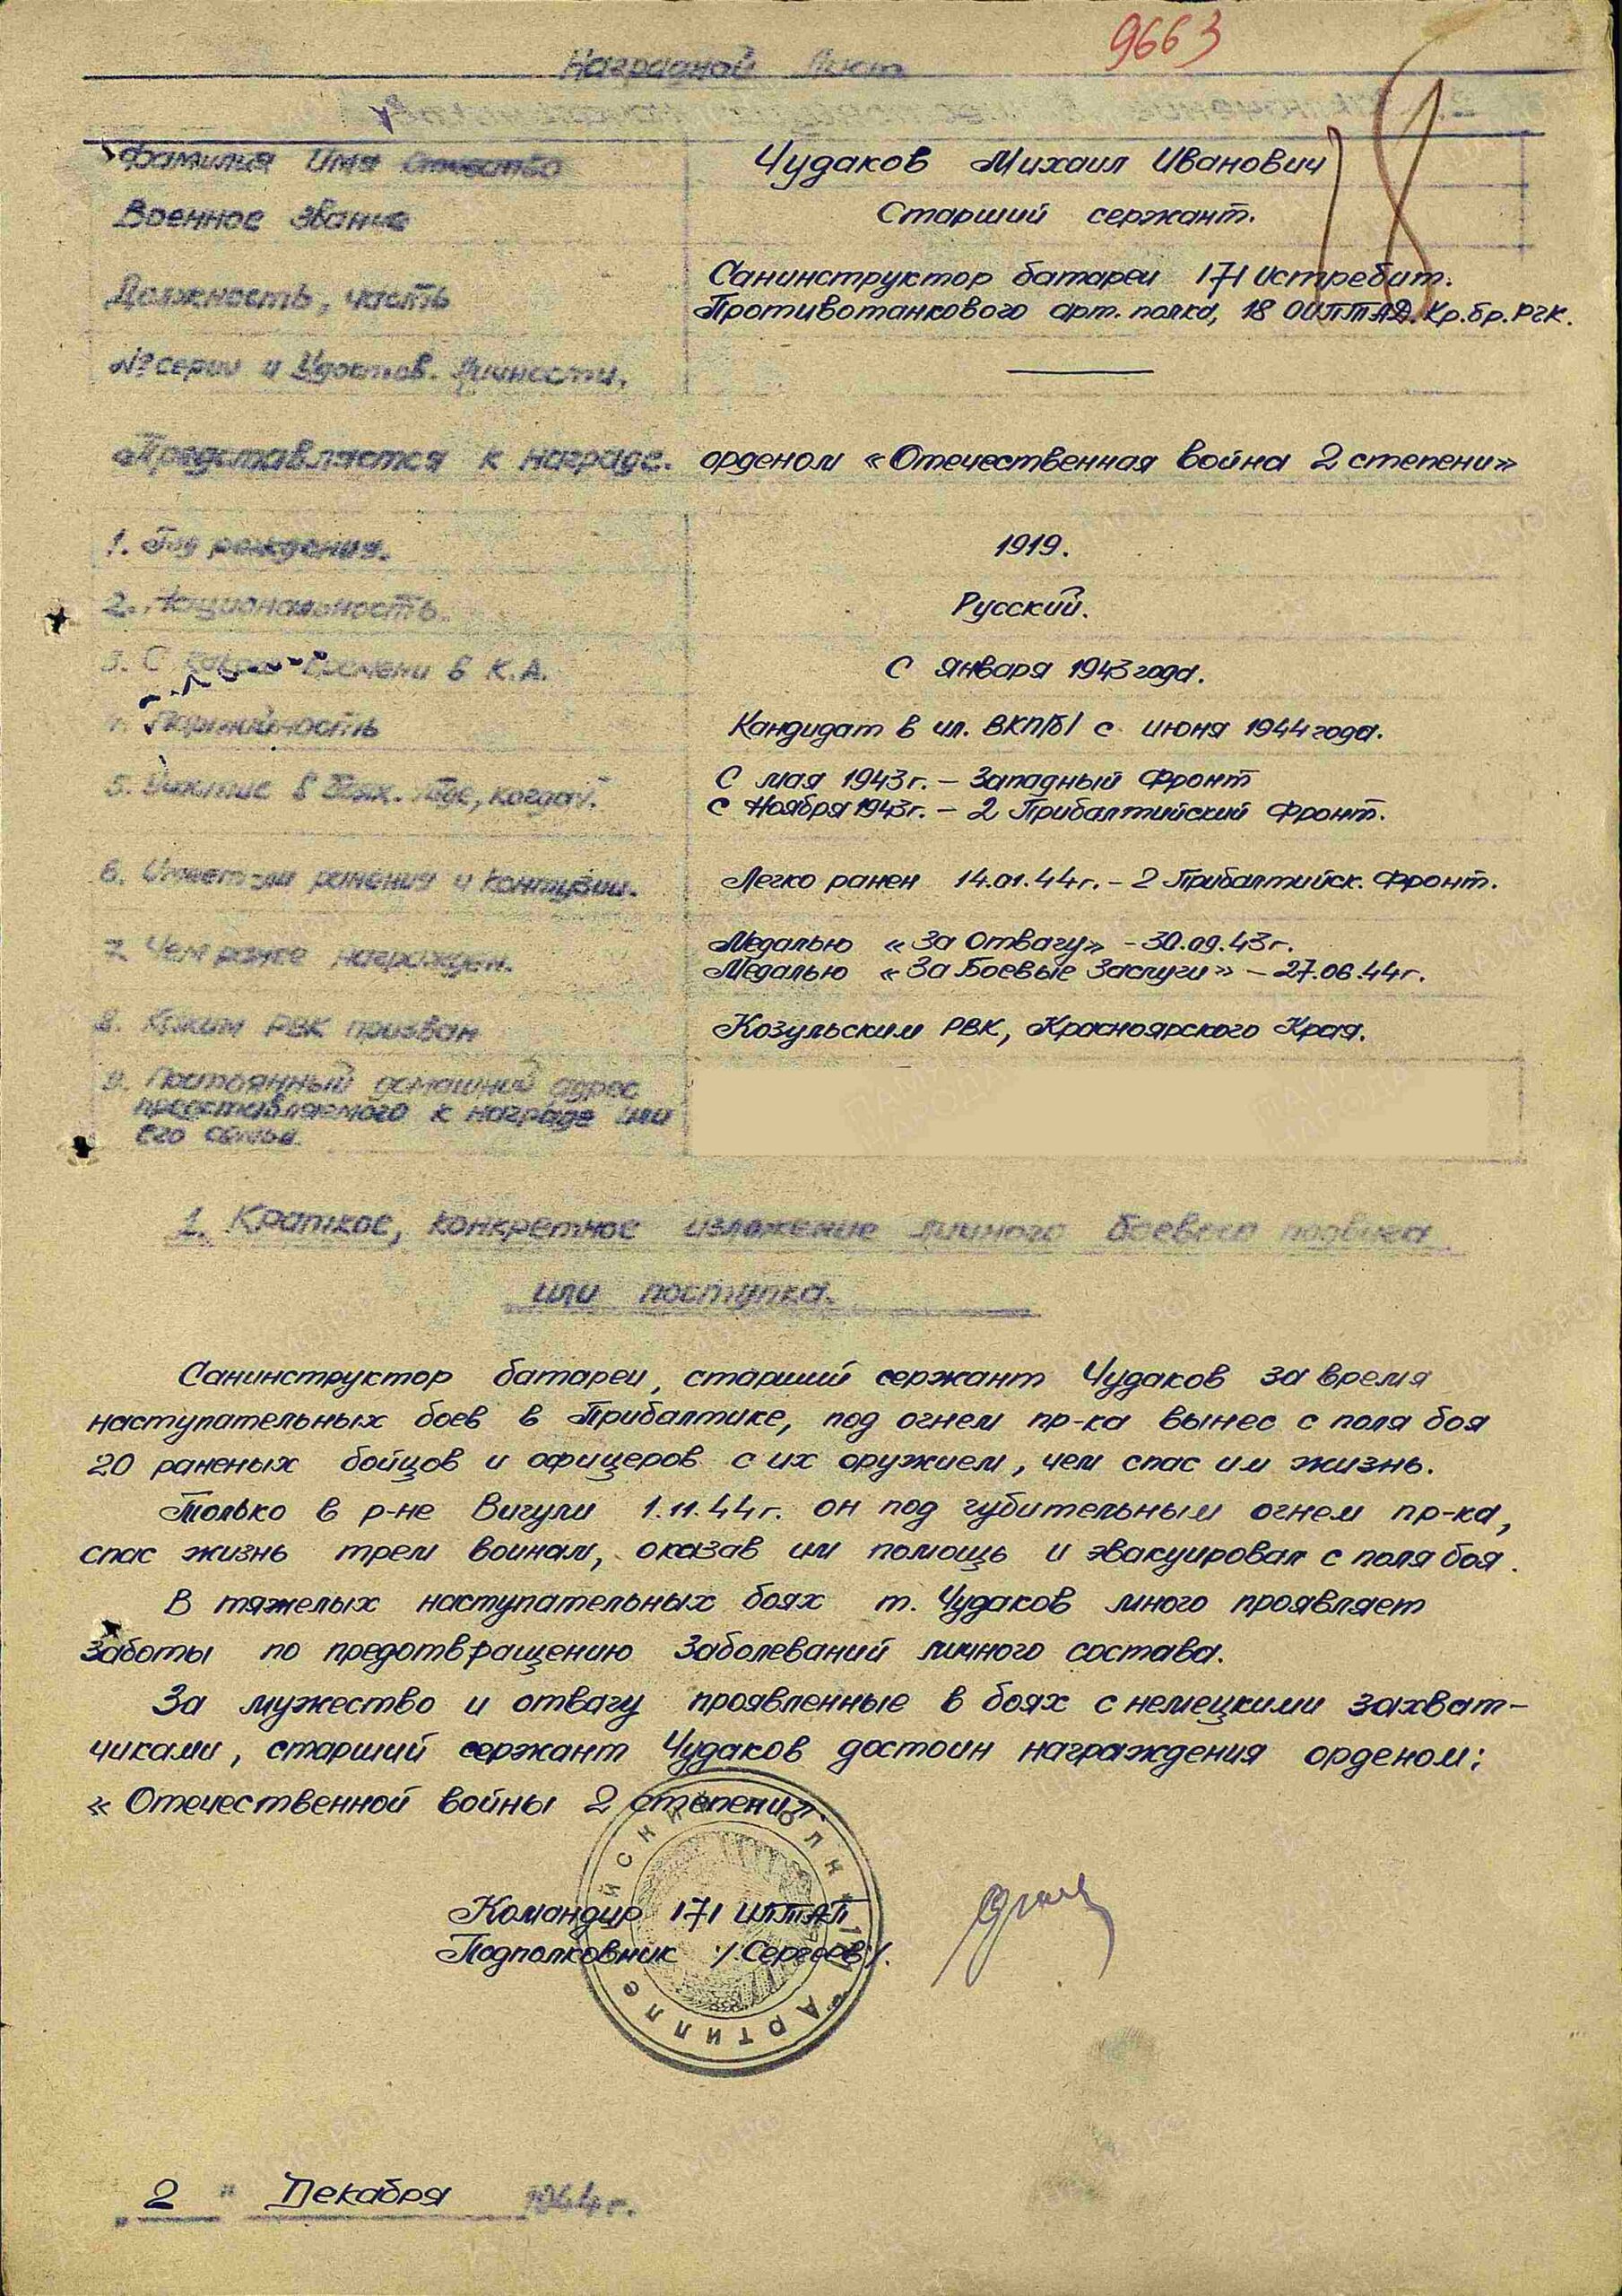 9663
Наградной Лист
18
Фамилия Имя Отчество
Чудаков Михаил Иванович
Военное звание
Старший сержант.
Должность, часть
Санинструктор батареи 171 истребит.
Противотанкового арт. полка, 18 ОИПТАД. Кр. бр. РГК.
№ серии и Удостов. Личности.
Представляется к награде.
орденом «Отечественная война 2 степени»
1. Год рождения.
1919.
2. Национальность.
Русский.
3. С какого времени в К.А.
С января 1943 года.
4. Партийность
Кандидат в чл. ВКП/б/ с июня 1944 года.
5. Участие в боях. Где, когда?
С мая 1943 г. – Западный Фронт
С Ноября 1943 г. – 2 Прибалтийский Фронт.
6. Имеет-ли ранения и контузии.
Легко ранен 14.01.44 г. – 2 Прибалтийск. Фронт.
7. Чем ранее награжден.
Медалью «За Отвагу» – 30.09.43 г.
Медалью «За Боевые Заслуги» – 27.06.44 г.
8. Каким РВК призван
Козульским РВК, Красноярского Края.
9. Постоянный домашний адрес
представляемого к награде или
его семьи.
1. Краткое, конкретное изложение личного боевого подвига
или поступка.
Санинструктор батареи, старший сержант Чудаков за время
наступательных боев в Прибалтике, под огнем пр-ка вынес с поля боя
20 раненых бойцов и офицеров с их оружием, чем спас им жизнь.
Только в р-не Вигули 1.11.44 г. он под губительным огнем пр-ка,
спас жизнь трем воинам, оказав им помощь и эвакуировал с поля боя.
В тяжелых наступательных боях т. Чудаков много проявляет
заботы по предотвращению заболеваний личного состава.
За мужество и отвагу проявленные в боях с немецкими захват-
чиками, старший сержант Чудаков достоин награждения орденом:
« Отечественной войны 2 степени»
Командир 171 ИПТАП
Подполковник /. Сергеев /.
„ 2 " Декабря 1944 г.